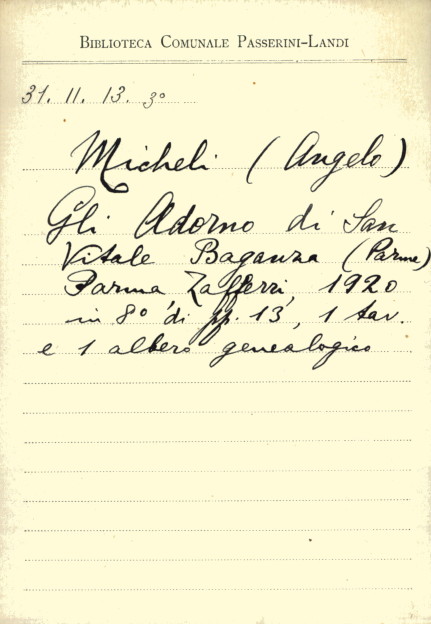 BIBLIOTECA COMUNALE PASSERINI-LANDI
31. II. 13. 3º
Micheli (Angelo)
Gli Adorno di San
Vitale Baganza (Parma)
Parma, Zafferri, 1920
in 8º di pp. 13, 1 tav.
e 1 albero genealogico